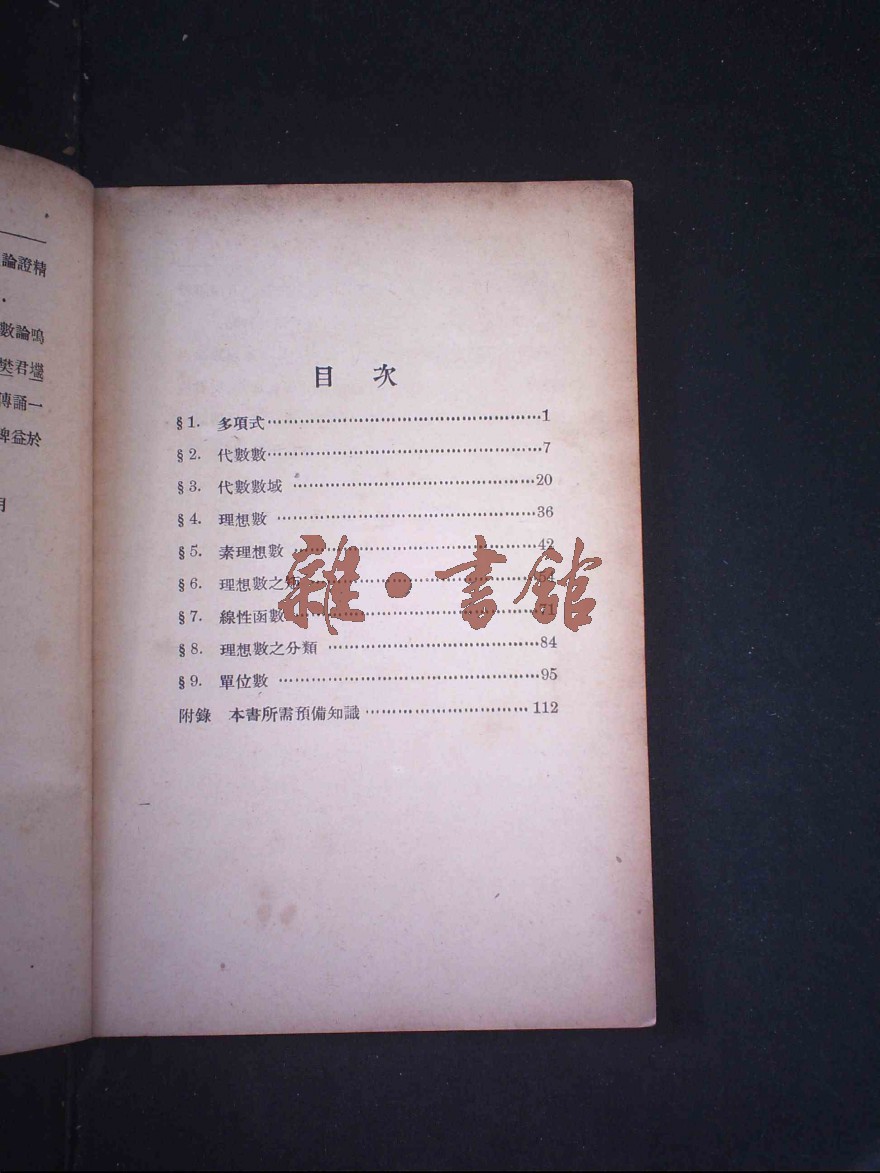 論證精
數論鳴
樊君㙺
傳誦一
裨益於
月
目 次
§1. 多項式 1
§2. 代數數 7
§3. 代數數域 20
§4. 理想數 36
§5. 素理想數 42
§6. 理想數之 54
§7. 線性函數 71
§8. 理想數之分類 84
§9. 單位數 95
附錄 本書所需預備知識 112
雜·書館